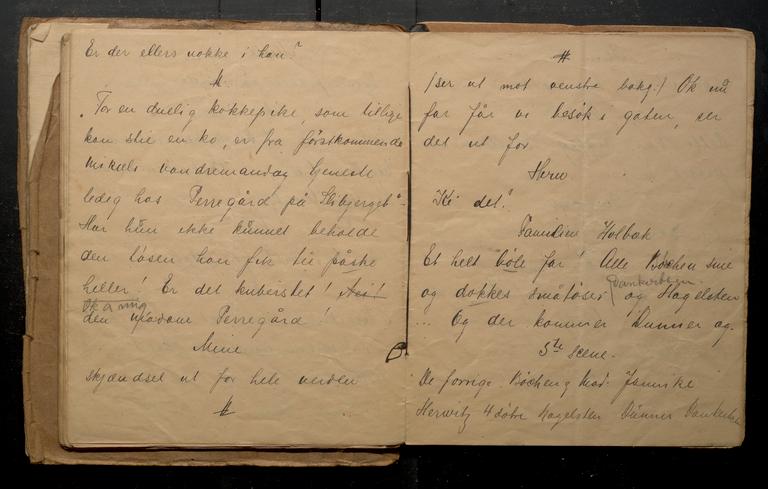 Er der ellers nokke i han?
H
"For en duelig kokkepike, som tillige
kan stie en ko, er fra förstkommende
Mikkels vandremandag tjeneste
ledig hos Perregård på Slibjerget"-
Har hün ikke künnet beholde
den tösen han fik til påske
heller! Er det kuberstet! Nei!
Ok a mig
den Perregård!
Mine
skjændsel ut for hele verden
H
H
(ser ut mot venstre bakg.) Ok nü
far får vi besök i gaten, ser
det ut for
Herw
Ki det?
Familien Holbæk
Et helt böle far! Alle Böchen sine
Dankertsen
og dokkes småtöser og Hagelsten
... Og der kommer Dunner og-
5te scene.
De forrige Böcheng Mad. Jannike
Herwitz 4 döttre Hagelsten Dünner